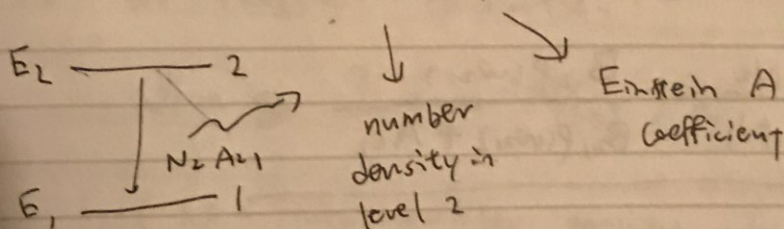 E2 2
N2 A21
E1 1
number
density in
level 2
Einstein A
Coefficient